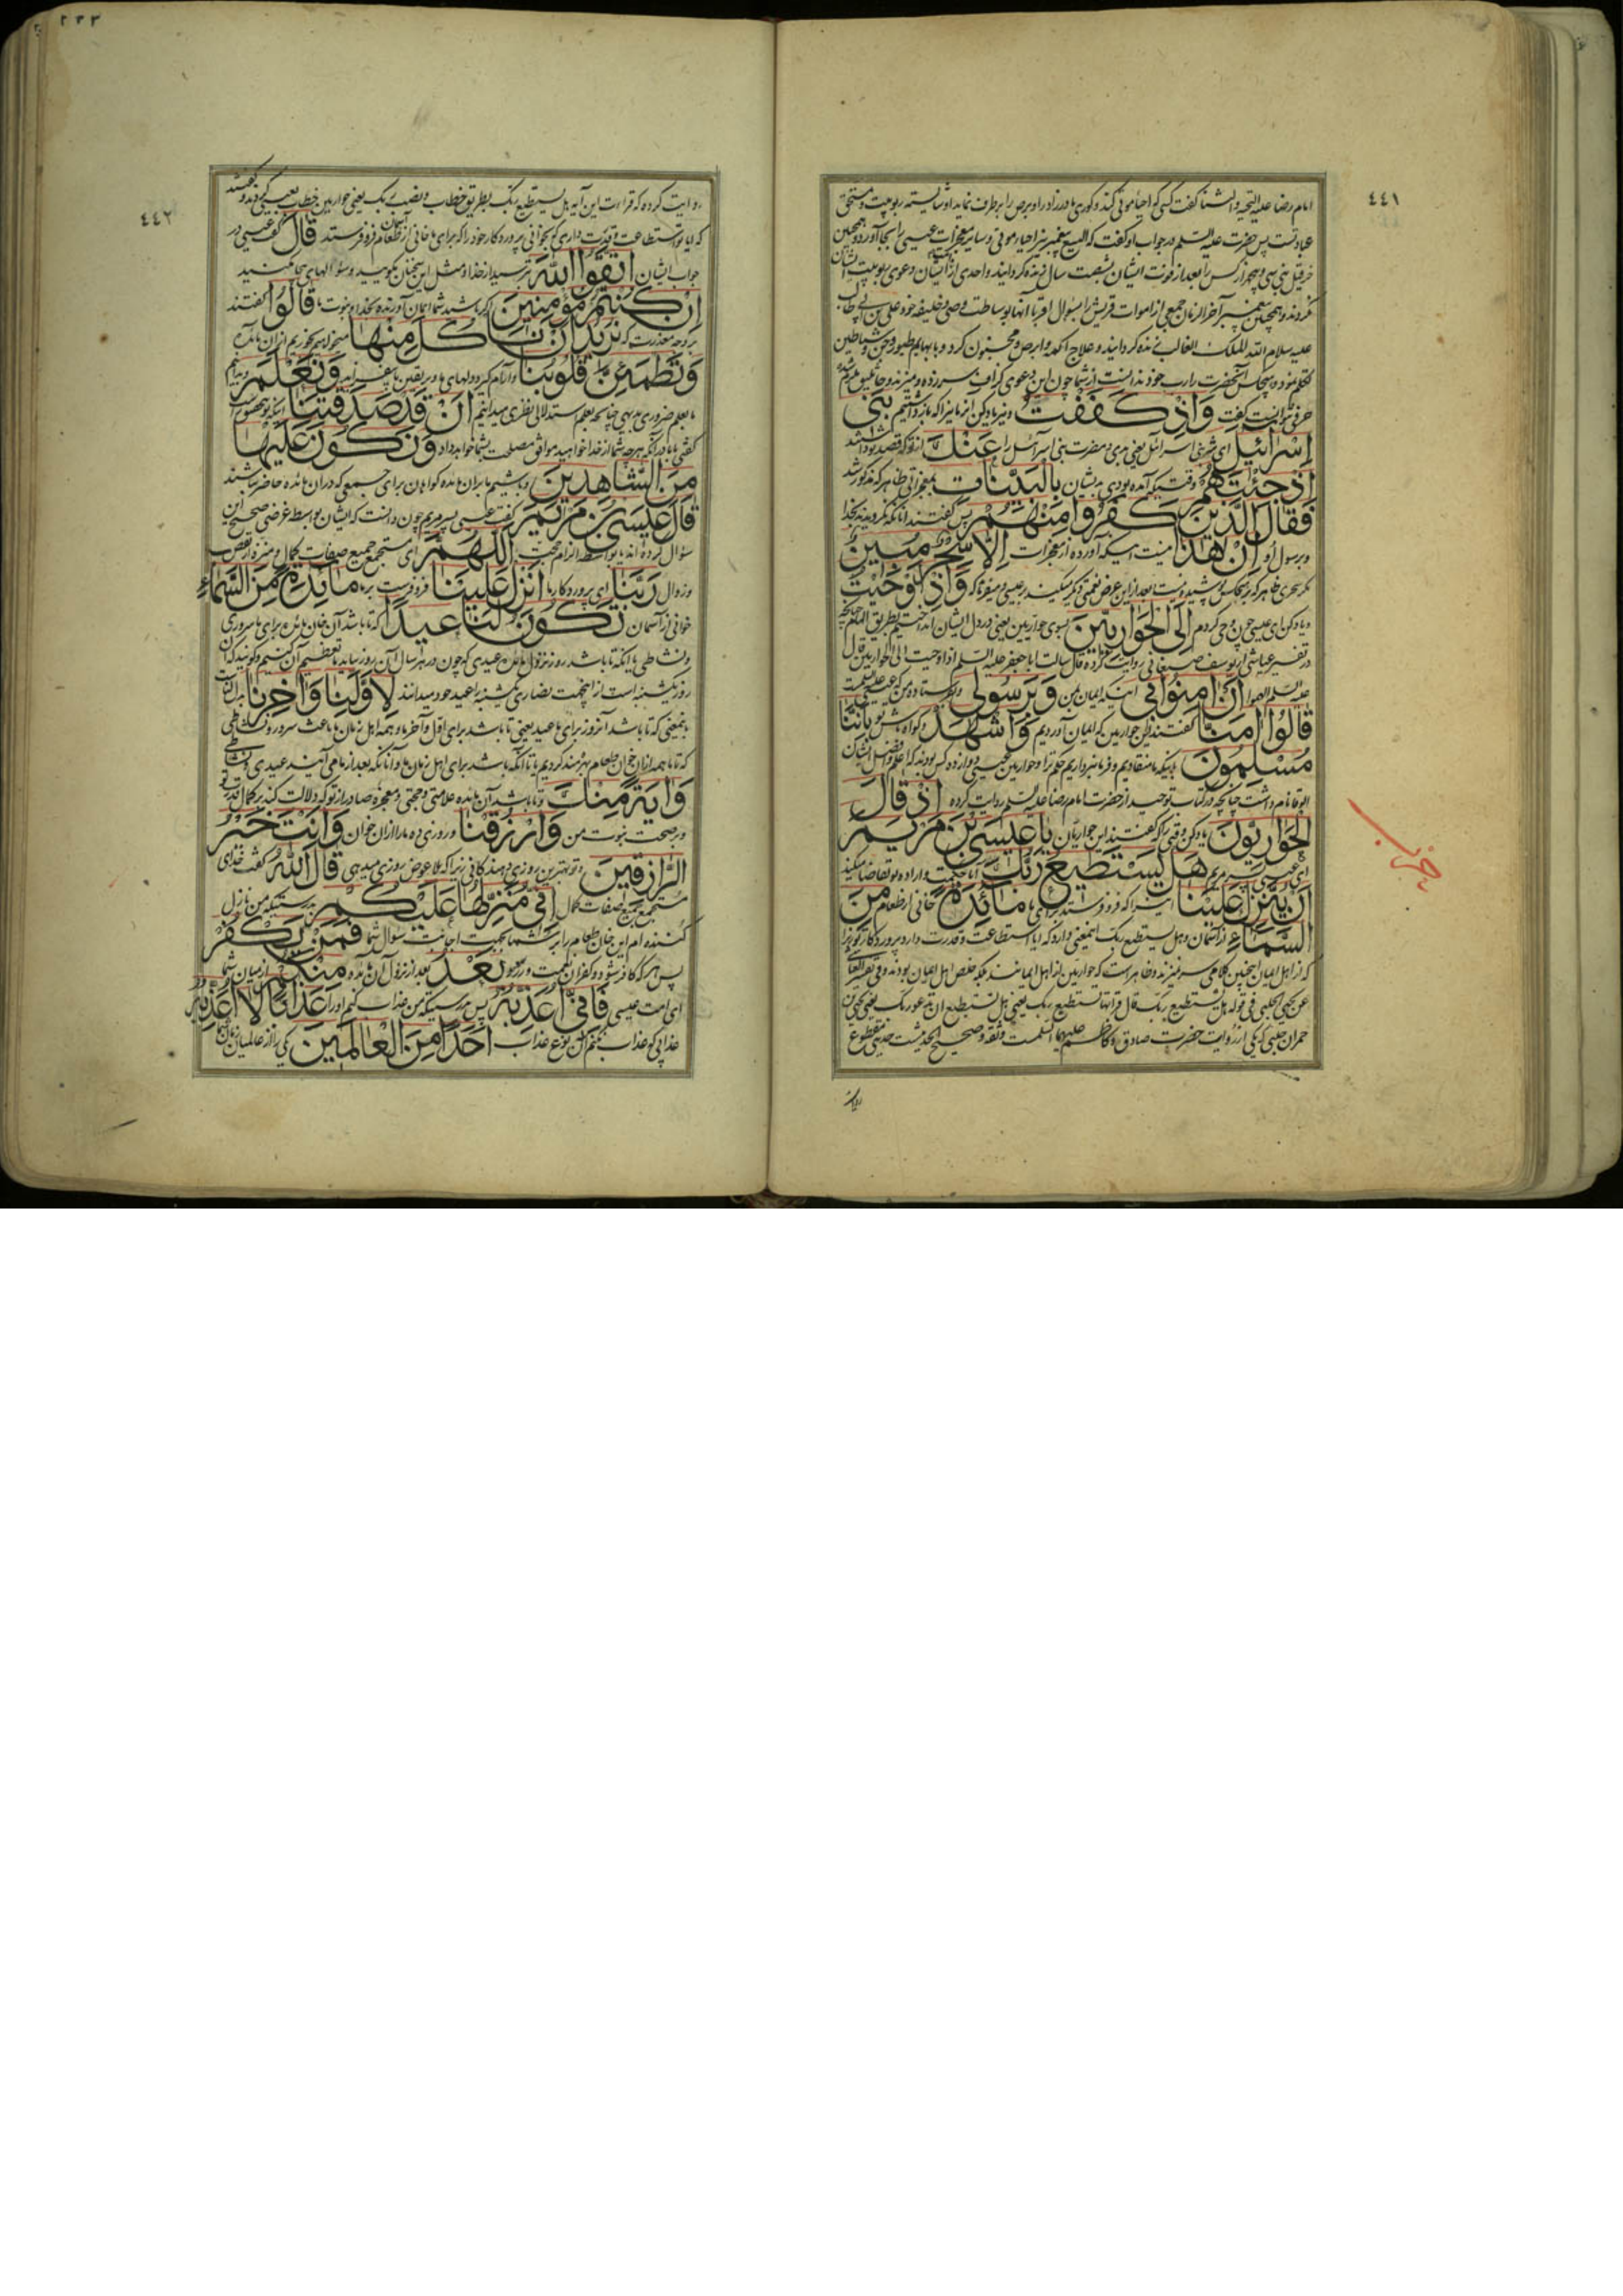 ٤٤١
امام رضا علیه التحیة والثنا گفت کسی که احیاء موتی کند و کور مادرزاد را و برص را برطرف نماید او شایسته ربوبیت و مستحق
عبادتست پس حضرت علیه السلم در جواب او گفت که الیسع پیغمبر نیز احیاء موتی و سایر معجزات عیسی را بجا آورد و همچنین
حزقیل نبی سی و پنج هزار کس را بعد از فوت ایشان بشصت سال زنده گردانید و احدی از ایشان دعوی ربوبیت ایشان
نکردند و همچنین پیغمبر آخر الزمان جمعی از اموات قریش را بسؤال اقربا آنها بوساطت وصی و خلیفه خود علی بن ابی طالب
علیه سلام الله الملک الغالب زنده گردانید و علاج اکمه و ابرص و مجنون کرد و با بهایم و طیور و جن و شیاطین
تکلم نموده هیچکس آنحضرت را رب خود ندانست از شما چون این دعوی گزاف سر زده
حرفی نتوانست گفت وَاِذْ كَفَفْتُ و نیز یاد کن که باز داشتم بَنی
اِسْرائیلَ ای شر بنی اسرائیل یعنی بدی و مضرت بنی اسرائیل را عَنْكَ از تو که قصد تو داشتند
اِذْ جِئْتَهُمْ وقتیکه آمده بودی به ایشان بِالْبَیِّناتِ بمعجزاتی ظاهر که مذکور شد
فَقالَ الَّذینَ كَفَرُوا مِنْهُمْ پس گفتند آنانکه نگرویدند بخدا
و برسول او اِنْ هذا نیست اینکه آورده از معجزات اِلّا سِحْرٌ مُبینٌ
مگر سحری ظاهر که بر هیچکس پوشیده نیست بعد از این عرض نعمتی دیگر میکند بر عیسی و میفرماید که وَاِذْ اَوْحَیْتُ
و یاد کن ای عیسی چون وحی کردم اِلَی الْحَوارِیّینَ بسوی حواریین یعنی در دل ایشان انداختم بطریق الهام چنانچه
در تفسیر عیاشی از یوسف صنعانی روایت کرده قال سالت ابا جعفر علیه السلم اذ اوحیت الی الحواریین قال
علیه السلم الهموا اَنْ امِنُوا بی اینکه ایمان بمن وَبِرَسُولی و بفرستاده من که عیسی علیه السلمست
قالُوا امَنّا گفتند این حواریین که ایمان آوردیم وَاشْهَدْ و گواه باش تو بِاَنَّنا
مُسْلِمُونَ باینکه ما منقادیم و فرمانبرداریم حکم ترا و حواریین عیسی دوازده کس بودند که اعلم و افضل ایشان
الوقا نام داشت چنانچه در کتاب توحید از حضرت امام رضا علیه السلم روایت کرده اِذْ قالَ
الْحَوارِیُّونَ یاد کن وقتی را که گفتند این حواریان یا عیسَی بْنَ مَرْیَمَ
ای عیسی پسر مریم هَلْ یَسْتَطیعُ رَبُّكَ ایا حکمت و اراده تو تقاضا میکند
اَنْ یُنَزِّلَ عَلَیْنا اینرا که فرو فرستد برای ما مائِدَةً خوانی از طعام مِنَ
السَّماءِ از آسمان و هل یستطیع ربک اینمعنی دارد که ایا استطاعت و قدرت دارد پروردگار تو زیرا
که از اهل ایمان اینچنین کلامی سر نمیزند و ظاهرست که حواریین از اهل ایمانند بلکه مخلص اهل ایمان بودند و فی تفسیر العیاشی
عن یحیی الحلبی فی قوله هل یستطیع ربک قال قرأتها تستطیع ربک یعنی هل تستطیع ان تدعو ربک یعنی یحیی بن
عمران حلبی که یکی از روات حضرت صادق و کاظم علیهما السلمست و ثقه و صحیح الحدیثست حدیثی مقطوع
روایت
٤٤٢
روایت کرده که قراءت این آیه هل تستطیع ربک بطریق خطاب و نصب ربک یعنی حواریین خطاب بعیسی کردند و گفتند
که ایا تو استطاعت و قدرت داری که بخوانی پروردگار خود را که برای ما خوانی از طعام فرو فرستد قالَ گفت عیسی در
جواب ایشان اتَّقُوا اللّهَ بترسید از خدا و مثل این سخنان مگویید و سؤالهای بیجا مکنید
اِنْ كُنْتُمْ مُؤْمِنینَ اگر باشید شما ایمان آورنده بخدا و نبوت ما قالُوا گفتند
بر وجه معذرت که نُریدُ اَنْ نَأْكُلَ مِنْها میخواهیم که بخوریم از آن مائده
وَتَطْمَئِنَّ قُلُوبُنا و آرام گیرد دلهای ما و بر یقین ما بیفزاید وَنَعْلَمَ و بدانیم
ما بعلم ضروری بدیهی چنانچه بعلم استدلالی نظری میدانیم اَنْ قَدْ صَدَقْتَنا اینکه بتحقیق راست
گفتی با ما در آنکه هر چه شما از خدا خواهید موافق مصلحت بشما خواهد داد وَنَكُونَ عَلَیْها
مِنَ الشّاهِدینَ و باشیم ما بر آن مائده گواهان برای جمعی که در آن مائده حاضر نباشند
قالَ عیسَی بْنُ مَرْیَمَ گفت عیسی پسر مریم چون دانست که ایشان بواسطه غرضی صحیح این
سؤال کرده اند یا بواسطه الزام حجت اَللّهُمَّ ای مستجمع جمیع صفات کمال و منزه از نقص
و زوال رَبَّنا ای پروردگار ما اَنْزِلْ عَلَیْنا فرو فرست بر ما مائِدَةً مِنَ السَّماءِ
خوانی از آسمان تَكُونُ لَنا عیدًا که تا باشد آن خوان مائده برای ما سروری
و نشاطی یا اینکه تا باشد روز نزول مائده عیدی که چون در هر سال آن روز بیاید ما تعظیم آن کنیم و گویند که آن
روز یکشنبه است از اینجهت نصاری یکشنبه را عید خود میدانند لِاَوَّلِنا وَاخِرِنا
باینمعنی که تا باشد آنروز برای ما عید یعنی تا باشد برای اول و آخر ما و همه اهل زمان ما باعث سرور و نشاطی
که تا ما همه از آن خوان طعام بهره مند گردیم یا تا آنکه باشد برای اهل زمان ما و آنانکه بعد از ما می آیند عیدی و نشاطی
وَایَةً مِنْكَ و تا باشد آن مائده علامتی و حجتی و معجزه صادر از تو که دلالت کند بر کمال قدرت تو
و بر صحت نبوت من وَارْزُقْنا و روزی ده ما را از آن خوان وَاَنْتَ خَیْرُ
الرّازِقینَ و تو بهترین روزی دهندگانی زیرا که بلا عوض روزی میدهی قالَ اللّهُ گفت خدای
مستجمع جمیع صفات کمال اِنّی مُنَزِّلُها عَلَیْكُمْ بدرستیکه من نازل
کننده ام این خوان طعام را بر شما بجهت اجابت سؤال شما فَمَنْ یَكْفُرْ
پس هر که کافر شود و کفران نعمت ورزد بَعْدُ بعد از نزول آن مائده مِنْكُمْ از میان شما
ای امت عیسی فَاِنّی اُعَذِّبُهُ پس بدرستیکه من عذاب کنم او را عَذابًا لا اُعَذِّبُهُ
عذابی که عذاب نکنم آن نوع عذاب اَحَدًا مِنَ الْعالَمینَ یکی را از عالمیان